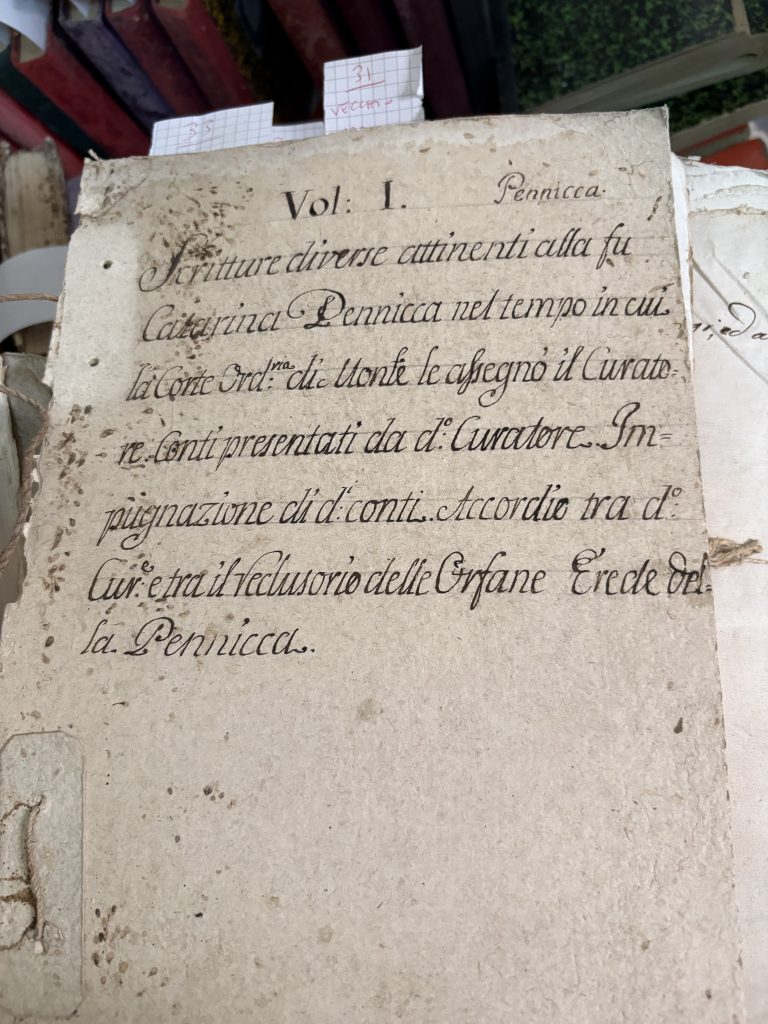 33
31
VECCHIO
Vol: I. Pennicca.
Scritture diverse attinenti alla fu
Catarina Pennicca nel tempo in cui
la Corte Ord:ria di Monte le assegnò il Curato=
re. Conti presentati da d:o Curatore. Im=
pugnazione di d:i conti. Accordio tra d:o
Cur:e e tra il Reclusorio delle Orfane Erede del=
la Pennicca.